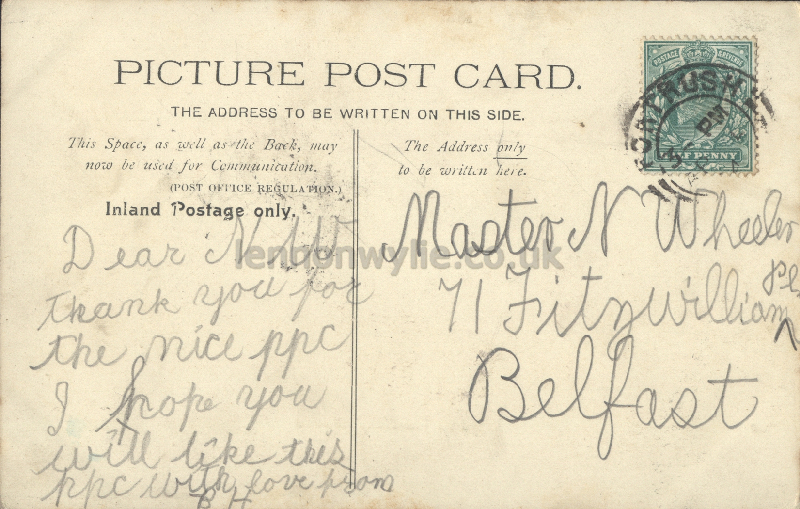 PICTURE POST CARD.
THE ADDRESS TO BE WRITTEN ON THIS SIDE.
This Space, as well as the Back, may
now be used for Communication.
(POST OFFICE REGULATION.)
Inland Postage only.
Dear N W
thank you for
the nice ppc
I hope you
will like this
ppc with love from
B H
The Address only
to be written here.
Master N Wheeler
71 Fitzwilliam Pl
Belfast
POSTAGE REVENUE
HALF PENNY
PORTRUSH
PM
lennonwylie.co.uk